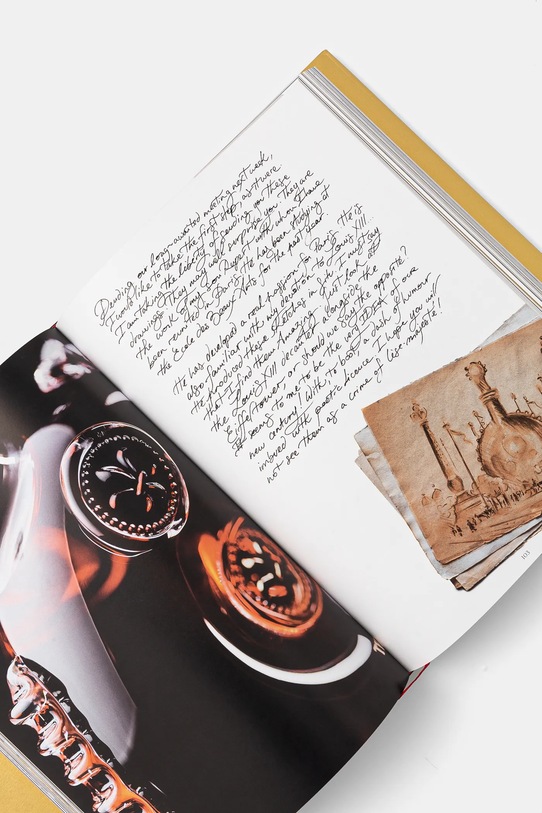 Pending our long-awaited meeting next week,
I would like to take the first step, as it were.
I am taking the liberty of sending you these
drawings. They may well surprise you. They are
the work of my son Rupert with whom I have
been reunited in Paris. He has been studying at
the École des Beaux-Arts for the past year.
He has developed a real passion for Paris. He is
also familiar with my devotion to Louis XIII.
He produced these sketches in it. I must say
that I find them amazing. Just look at
the Louis XIII decanter alongside the
Eiffel Tower, or should we say the opposite?
It seems to me to be the very IDEA of our
new century! With, to boot, a dash of humour
imbued with poetic licence. I hope you will
not see them as a crime of lèse-majesté!
103